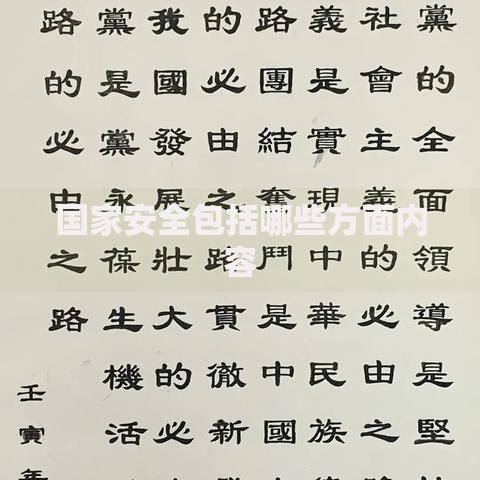 黨的全面領導是堅
社會主義的必由之
義是實現中華民族
路團結奮鬥是中國
的必由之路貫徹新
我國發展壯大的必
黨是黨永葆生機活
路的必由之路
壬寅年
国家安全包括哪些方面内
容